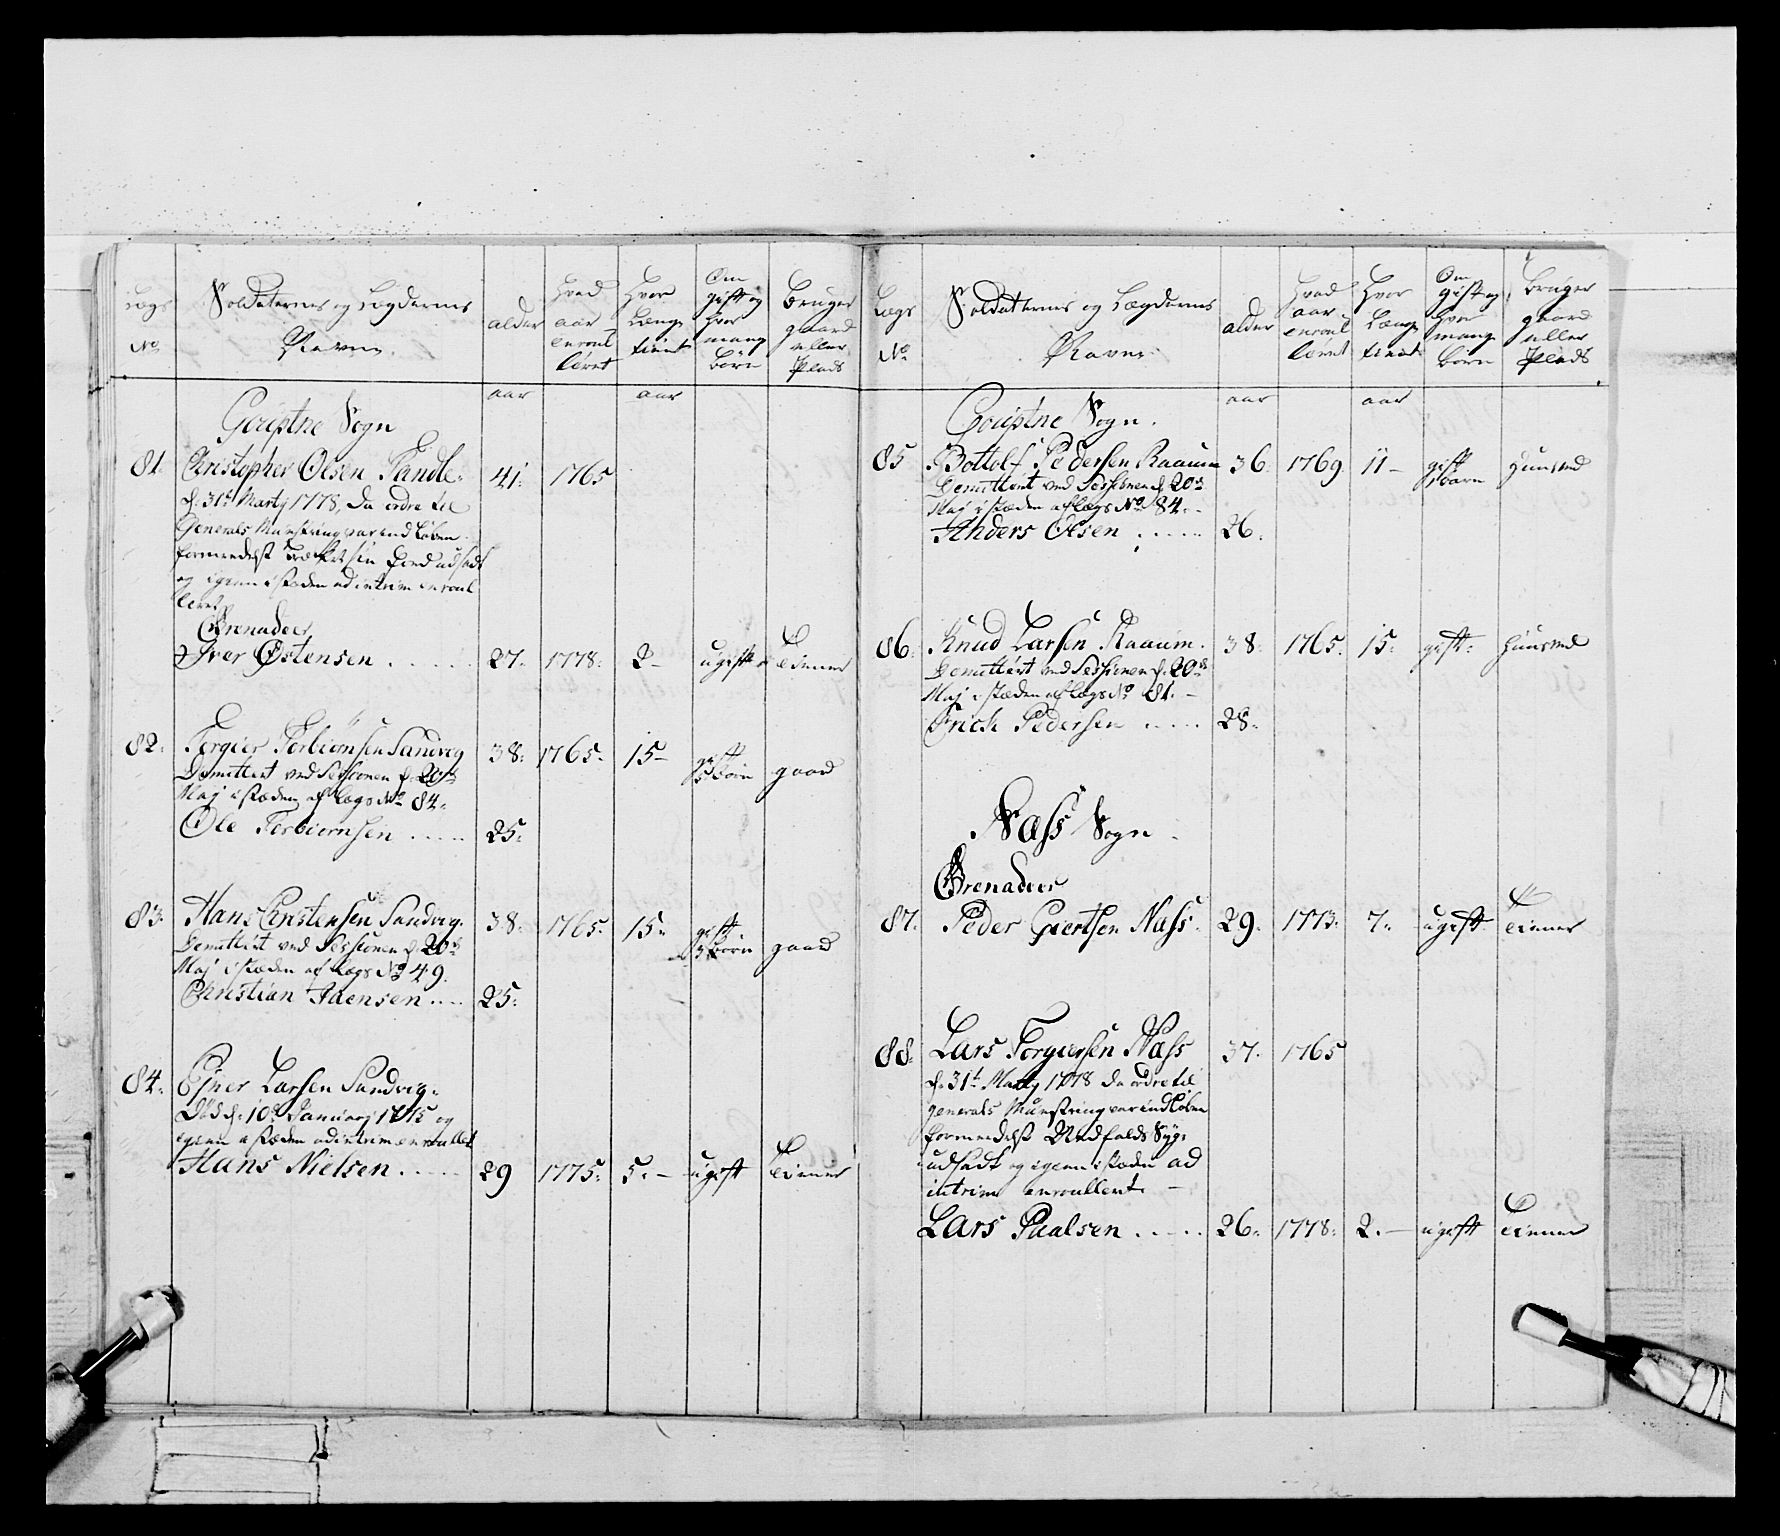 Lægs No
Soldaternes og Lægdernes Navne.
alder
Hvad aar enroulleret
Hvor Længe tient
Om gift og hvor mange Børn
Bruger gaard eller Plads
aar
aar
Sogn
81 Christopher Olsen Sandle. 41. 1765
d. 31t Martij 1778, da ordre til
Generals Munstring var indløben
formedelst Bræk sin Fod udsadt
og igien i stæden ad intrim enroul
leret
Grenadeer
Iver Østensen . . . . . 27. 1778. 2- ugift Tiener
82. Torgier Torbiørnsen Sandvig 38. 1765. 15- gift 5 børn gaard
Demittert ved Sessionen d. 20de
Maj i stæden af Lægs No 84.
Ole Torbiørnsen . . . . . 25.
83. Hans Christensen Sandvig. 38. 1765. 15. gift 3 børn gaard
Demittert ved Sessionen d. 20de
Maj i stæden af Lægs No 49.
Christian Jaensen . . . . 25.
84. Ejner Larsen Sandvig.
Død d. 10de Januarj 1775 og
igien i stæden ad intrim enroullet
Hans Nielsen . . . . . 29 1775. 5.- ugift Tiener
Lægs No
Soldaternes og Lægdernes Navne
alder
Hvad aar enroulleret
Hvor Længe tient
Om gift og hvor mange Børn
Bruger gaard eller Plads
aar
aar
Sogn.
85 Bottolf Pedersen Raaum 36. 1769. 11- gift 1 barn Huusmd
Demittert ved Sessionen d. 20de
Maj i stæden af Lægs No 84.
Anders Olsen . . . . . 26.
86. Knud Larsen Raaum. 38. 1765. 15. gift. Huusmd
Demittert ved Sessionen d. 20de
Maj i stæden af Lægs No 81. -
Erich Pedersen . . . . . 28.
Næss Sogn.
Grenadeer
87. Peder Giertsen Næss. 29. 1773. 7. ugift Tiener
88. Lars Torgiersen Næss 37. 1765
d. 31t Martij 1778 da ordre til
generals Munstring var indløben
formedelst Nedfalds Syge
udsadt og igien i stæden ad
intrim enroullert. -
Lars Paalsen . . . . . 26. 1778. 2.- ugift Tiener